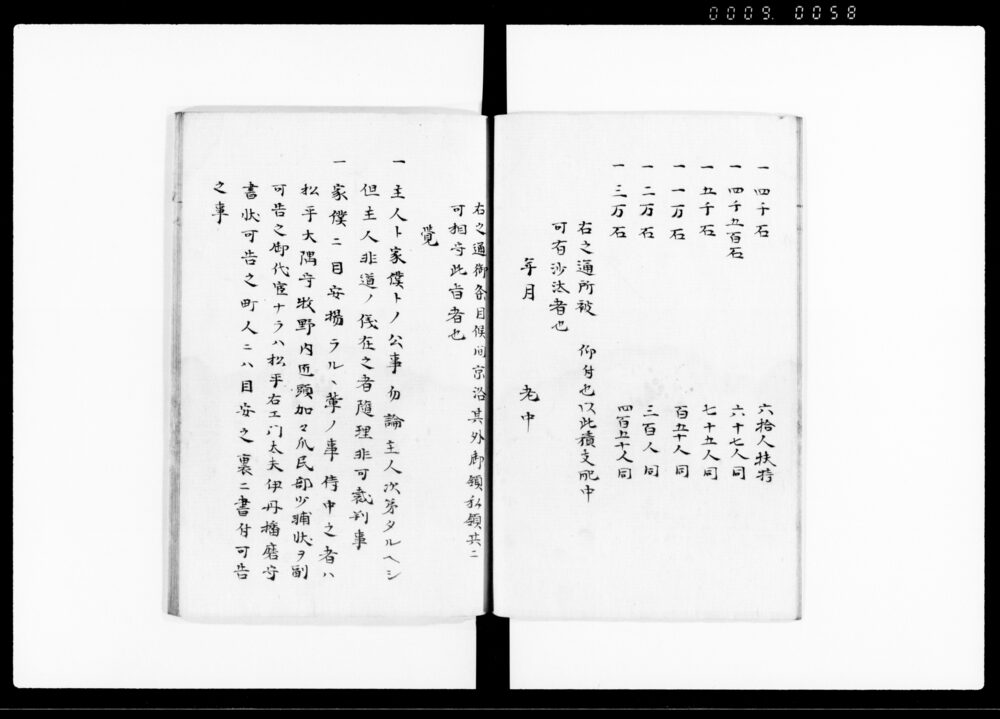 0009. 0058
一 四千石 六拾人扶持
一 四千五百石 六十七人同
一 五千石 七十五人同
一 一万石 百五十人同
一 二万石 三百人同
一 三万石 四百五十人同
右之通所被 仰付也以此積支配中
可有沙汰者也
年月 老中
右之通御条目候間京洛其外御領私領共ニ
可相守此旨者也
覚
一 主人ト家僕トノ公事勿論主人次第タルヘシ
但主人非道ノ儀在之者随理非可裁判事
一 家僕ニ目安揚ラルヽ輩ノ事侍中之者ハ
松平大隅守牧野内匠頭加々爪民部少輔状ヲ副
可告之御代官ナラハ松平右エ门太夫伊丹播磨守
書状可告之町人ニハ目安之裏ニ書付可告
之事